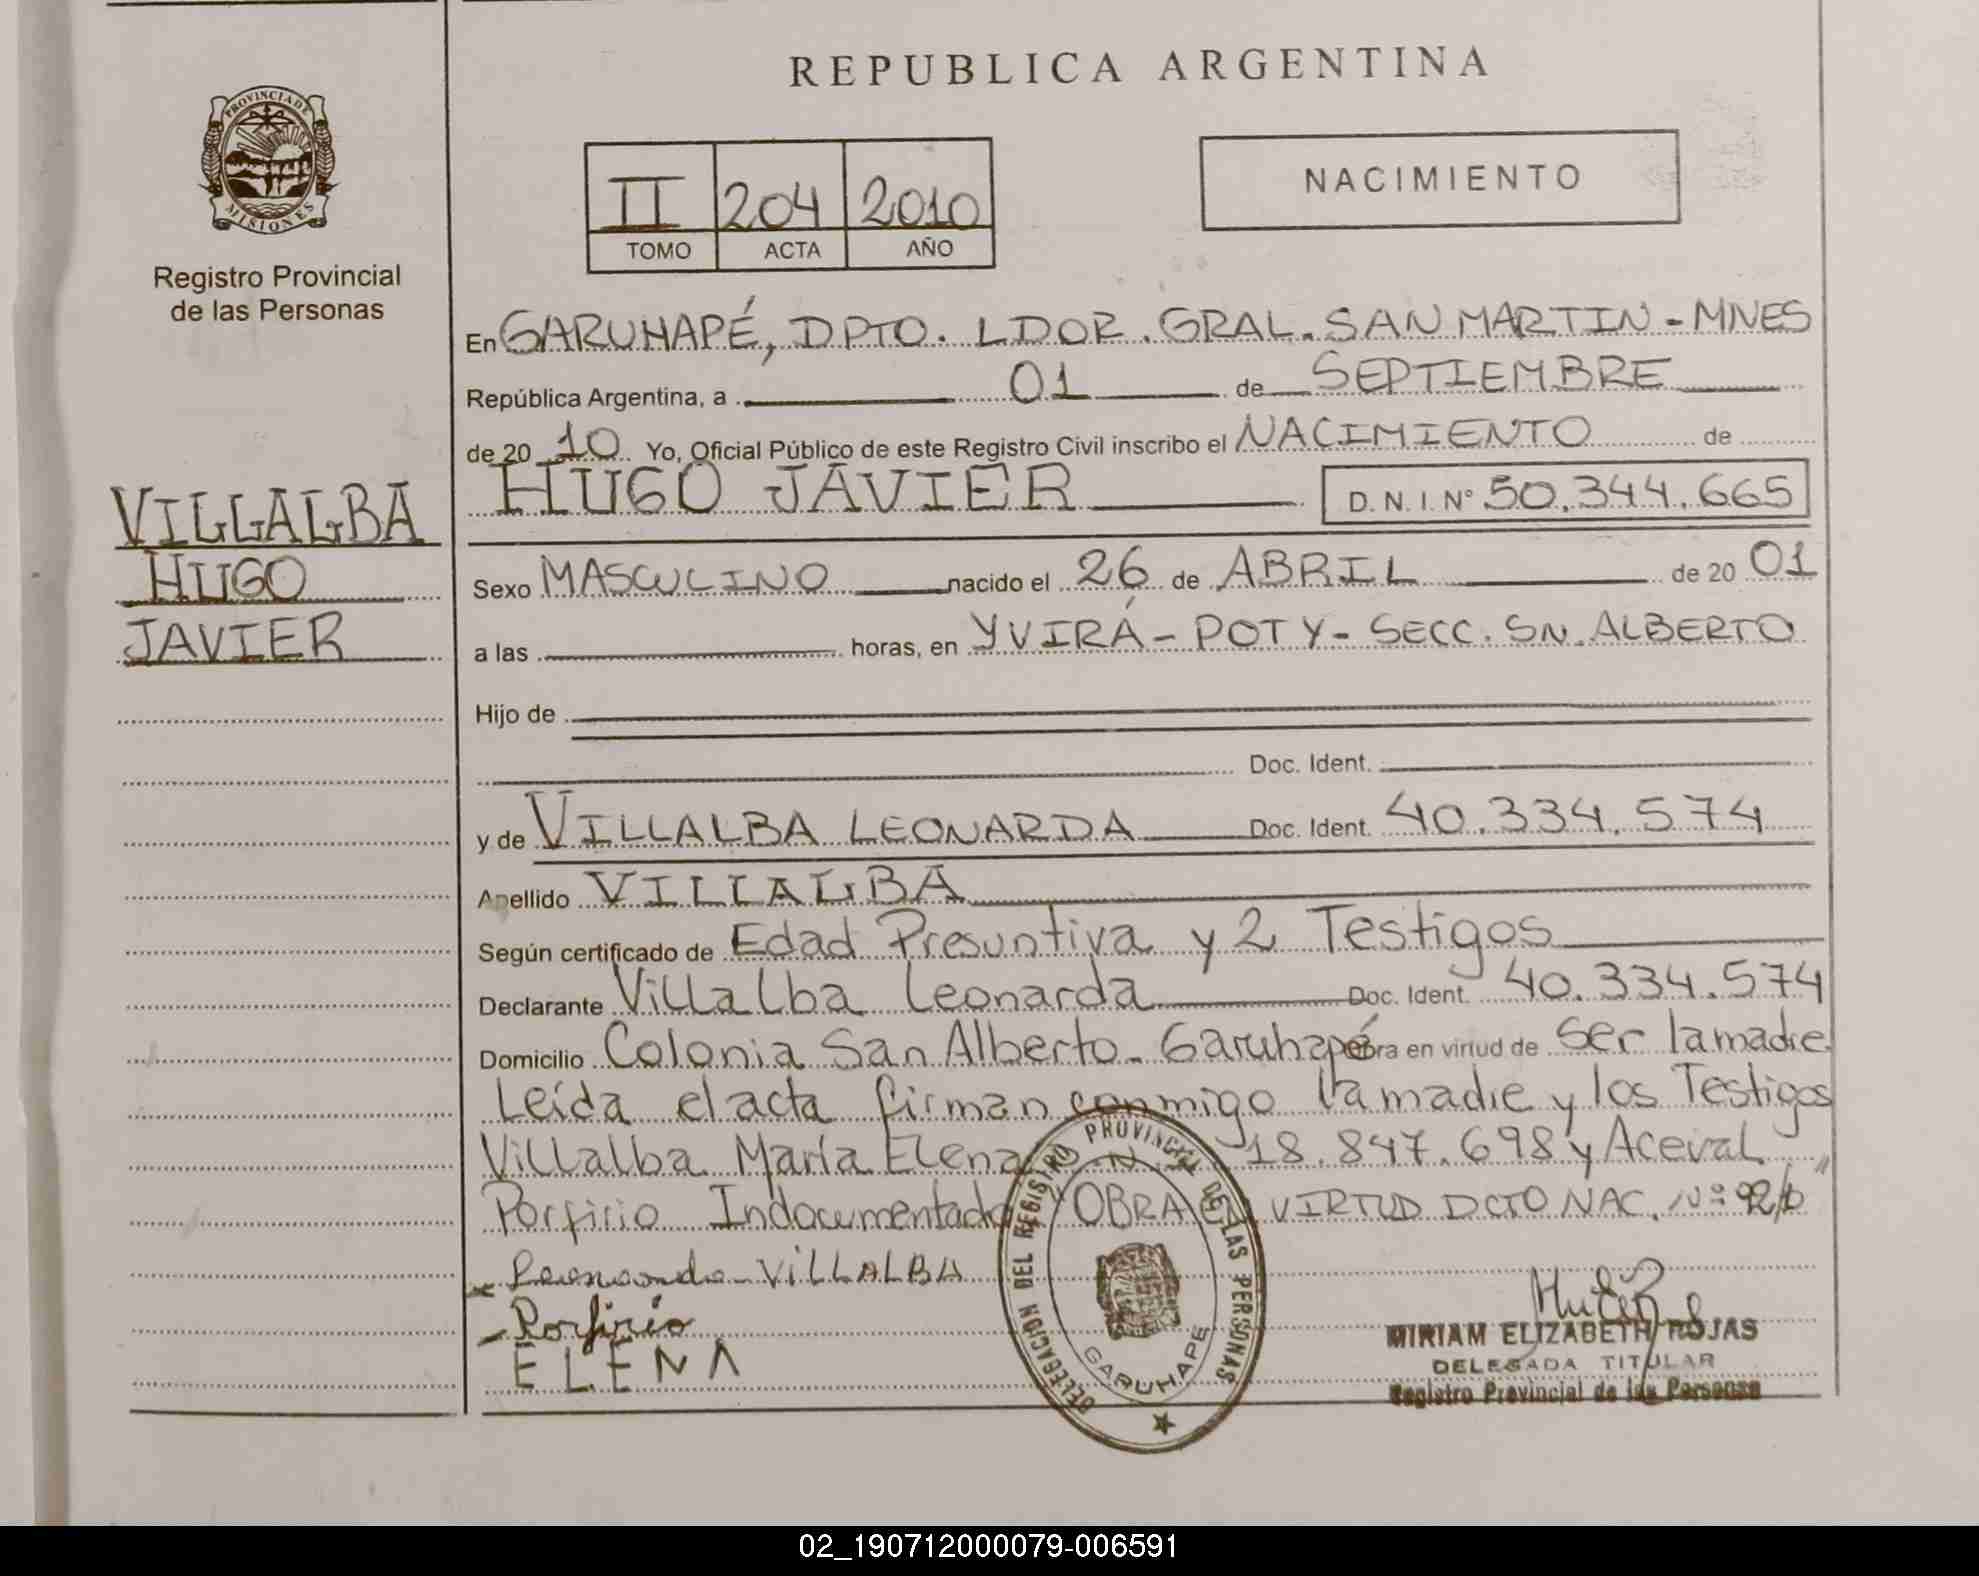 REPUBLICA ARGENTINA
PROVINCIA DE MISIONES
Registro Provincial
de las Personas
II 204 2010
TOMO ACTA AÑO
NACIMIENTO
VILLALBA
HUGO
JAVIER
En GARUHAPÉ, DPTO. LDOR. GRAL. SAN MARTIN - MNES
República Argentina, a 01 de SEPTIEMBRE
de 20 10 Yo, Oficial Público de este Registro Civil inscribo el NACIMIENTO de
HUGO JAVIER D.N.I. N° 50.344.665
Sexo MASCULINO nacido el 26 de ABRIL de 20 01
a las horas, en YVIRÁ - POTY - SECC. SN. ALBERTO
Hijo de
Doc. Ident.
y de VILLALBA LEONARDA Doc. Ident. 40.334.574
Apellido VILLALBA
Según certificado de Edad Presuntiva y 2 Testigos
Declarante Villalba Leonarda Doc. Ident. 40.334.574
Domicilio Colonia San Alberto - Garuhapé obra en virtud de ser la madre
Leída el acta firman conmigo la madre y los Testigos
Villalba María Elena 18.847.698 y Aceval
Porfirio Indocumentado OBRA EN VIRTUD DCTO NAC. N°
VILLALBA
Porfirio
ELENA
DELEGACION DEL REGISTRO PROVINCIAL DE LAS PERSONAS
GARUHAPE
MIRIAM ELIZABETH ROJAS
DELEGADA TITULAR
Registro Provincial de las Personas
02_190712000079-006591